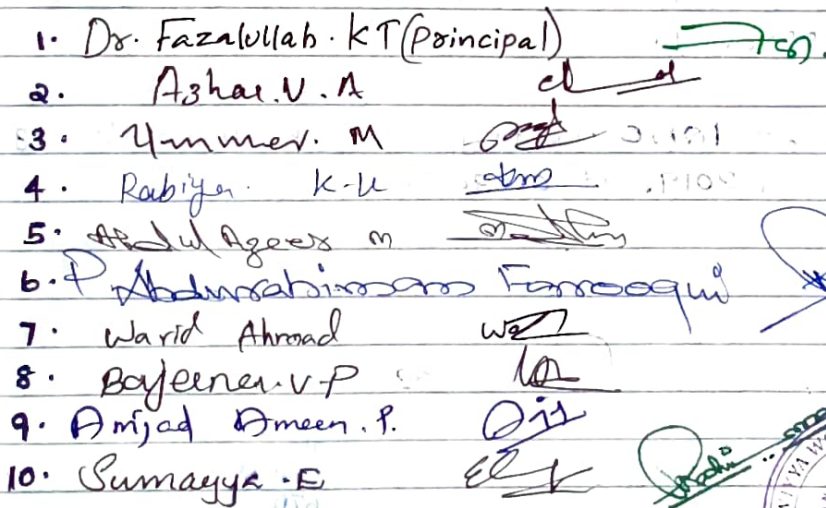 1. Dr. Fazalullah. KT (Principal)
2. Azhar. V. A
3. Ummer. M
4. Rabiya K-U
5. Abdul Azeez m
6. P. Abdurahiman Farooqui
7. Warid Ahmad
8. Bajeena. V-P
9. Amjad Ameen. P.
10. Sumayya. E